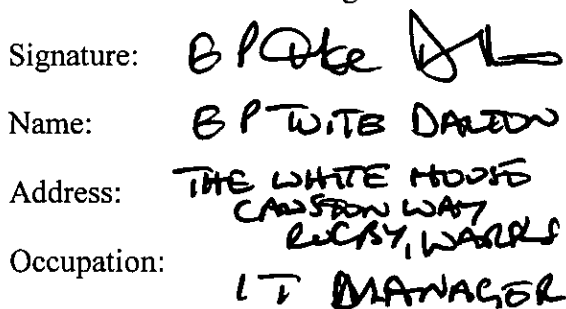 Signature: B P
Name: B P TWITE DALTON
Address: THE WHITE HOUSE
CAWSTON WAY
RUGBY, WARKS
Occupation:
IT MANAGER